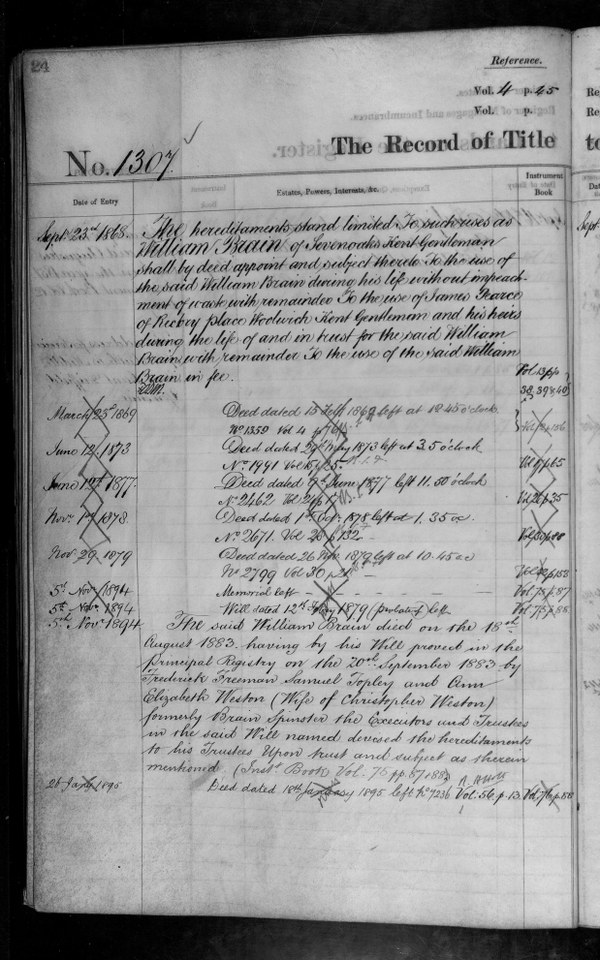 24
Reference.
Vol. 4 p. 45
Vol. p.
The Record of Title
No. 1307.
Date of Entry
Estates, Powers, Interests, &c.
Instrument Book
Sept. 23rd 1868.
The hereditaments stand limited To such uses as
William Brain of Sevenoaks Kent Gentleman
shall by deed appoint and subject thereto To the use of
the said William Brain during his life without impeach-
ment of waste with remainder To the use of James Pearce
of Place Woolwich Kent Gentleman and his heirs
during the life of and in trust for the said William
Brain with remainder To the use of the said William
Brain in fee.
Vol. 13 pp
38, 39 & 40
March 25th 1869
Deed dated 13 Feby 1869 left at 12.45 o'clock
No 1359 Vol 4 p
June 12. 1873
Deed dated May 1873 left at 3.5 o'clock
No. 1991 Vol
June 12th 1877.
Deed dated 9th June 1877 left 11.50 o'clock
No 2462 Vol
Novr. 1st 1878.
Deed dated 1st 1878 left at 1.35 oc
No. 2671. Vol. 28 p 132
Nov 29 1879
Deed dated 26 Nov 1879 left at 10.45 oc
No 2799 Vol 30 p
5th Novr 1894
Memorial left
Vol 75 p 87
5th Novr. 1894
Will dated 12th 1879 (probate of) left
Vol 75 p 88
5th Novr 1894
The said William Brain died on the 18th
August 1883 having by his Will proved in the
Principal Registry on the 20th September 1883 by
Frederick Freeman Samuel Topley and Ann
Elizabeth Weston (Wife of Christopher Weston)
formerly Brain Spinster the Executors and Trustees
in the said Will named devised the hereditaments
to his Trustees Upon trust and subject as therein
mentioned (Inst. Book Vol. 75 pp. 87 & 88)
26 Jany 1895
Deed dated 18th January 1895 left No 7236 Vol. 56. p. 13 Vol. 76 p. 88